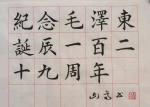 紀念毛澤東
誕辰一百二
十九周年